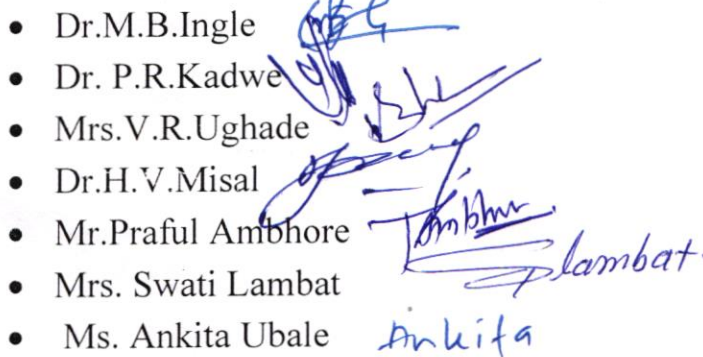 • Dr.M.B.Ingle
• Dr. P.R.Kadwe
• Mrs.V.R.Ughade
• Dr.H.V.Misal
• Mr.Praful Ambhore Ambhore
• Mrs. Swati Lambat Slambat.
• Ms. Ankita Ubale Ankita